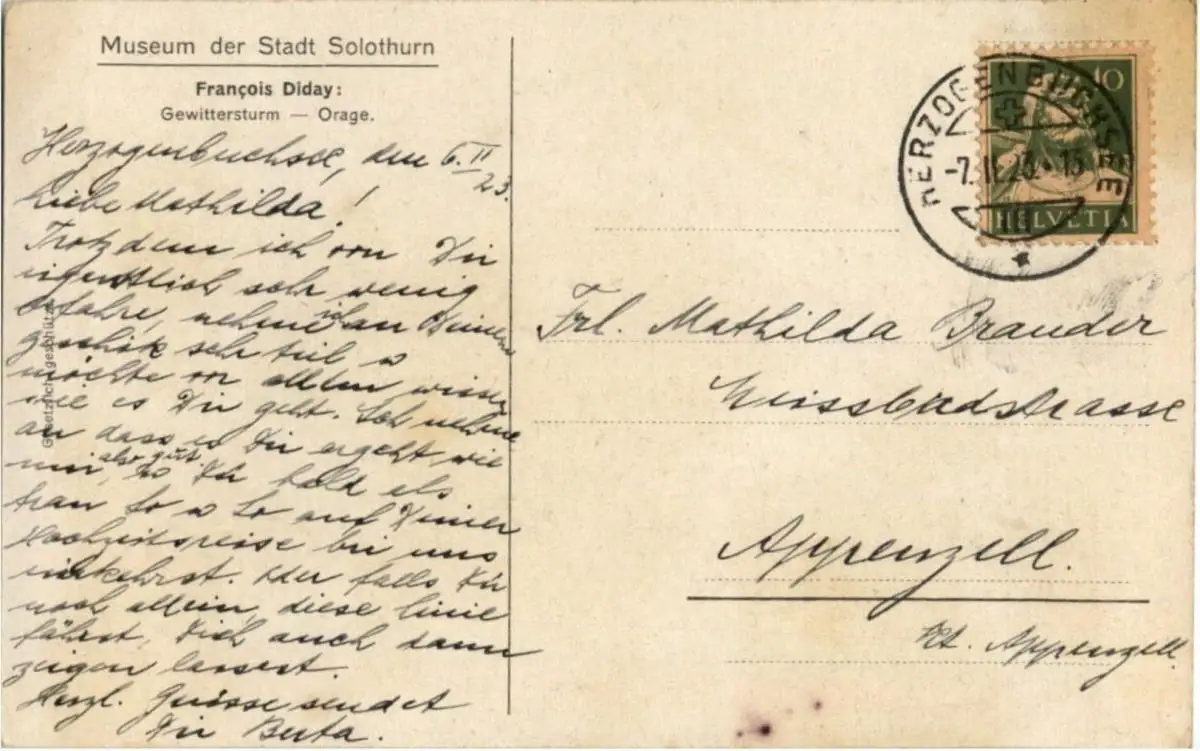 Museum der Stadt Solothurn
François Diday:
Gewittersturm — Orage.
Herzogenbuchsee, den 6. II
23.
Liebe Mathilda!
Trotzdem ich von Dir
eigentlich sehr wenig
erfahre, nehme ich an Deinem
sehr teil u
möchte vor allem wissen
wie es Dir geht. Ich nehme
an dass es Dir ergeht wie
mir, also gut, Du bald als
frau So u So auf Deiner
Hochzeitsreise bei uns
einkehrst. Oder falls Du
noch allein, diese linie
fährst, Dich auch dann
zeigen lassest.
Herzl. Grüsse sendet
Dir Berta.
Gesetzlich geschützt
HERZOGENBUCHSEE
-7. II. 23. 15
10
HELVETIA
Frl. Mathilda Brander
Weissbadstrasse
Appenzell.
Kt. Appenzell